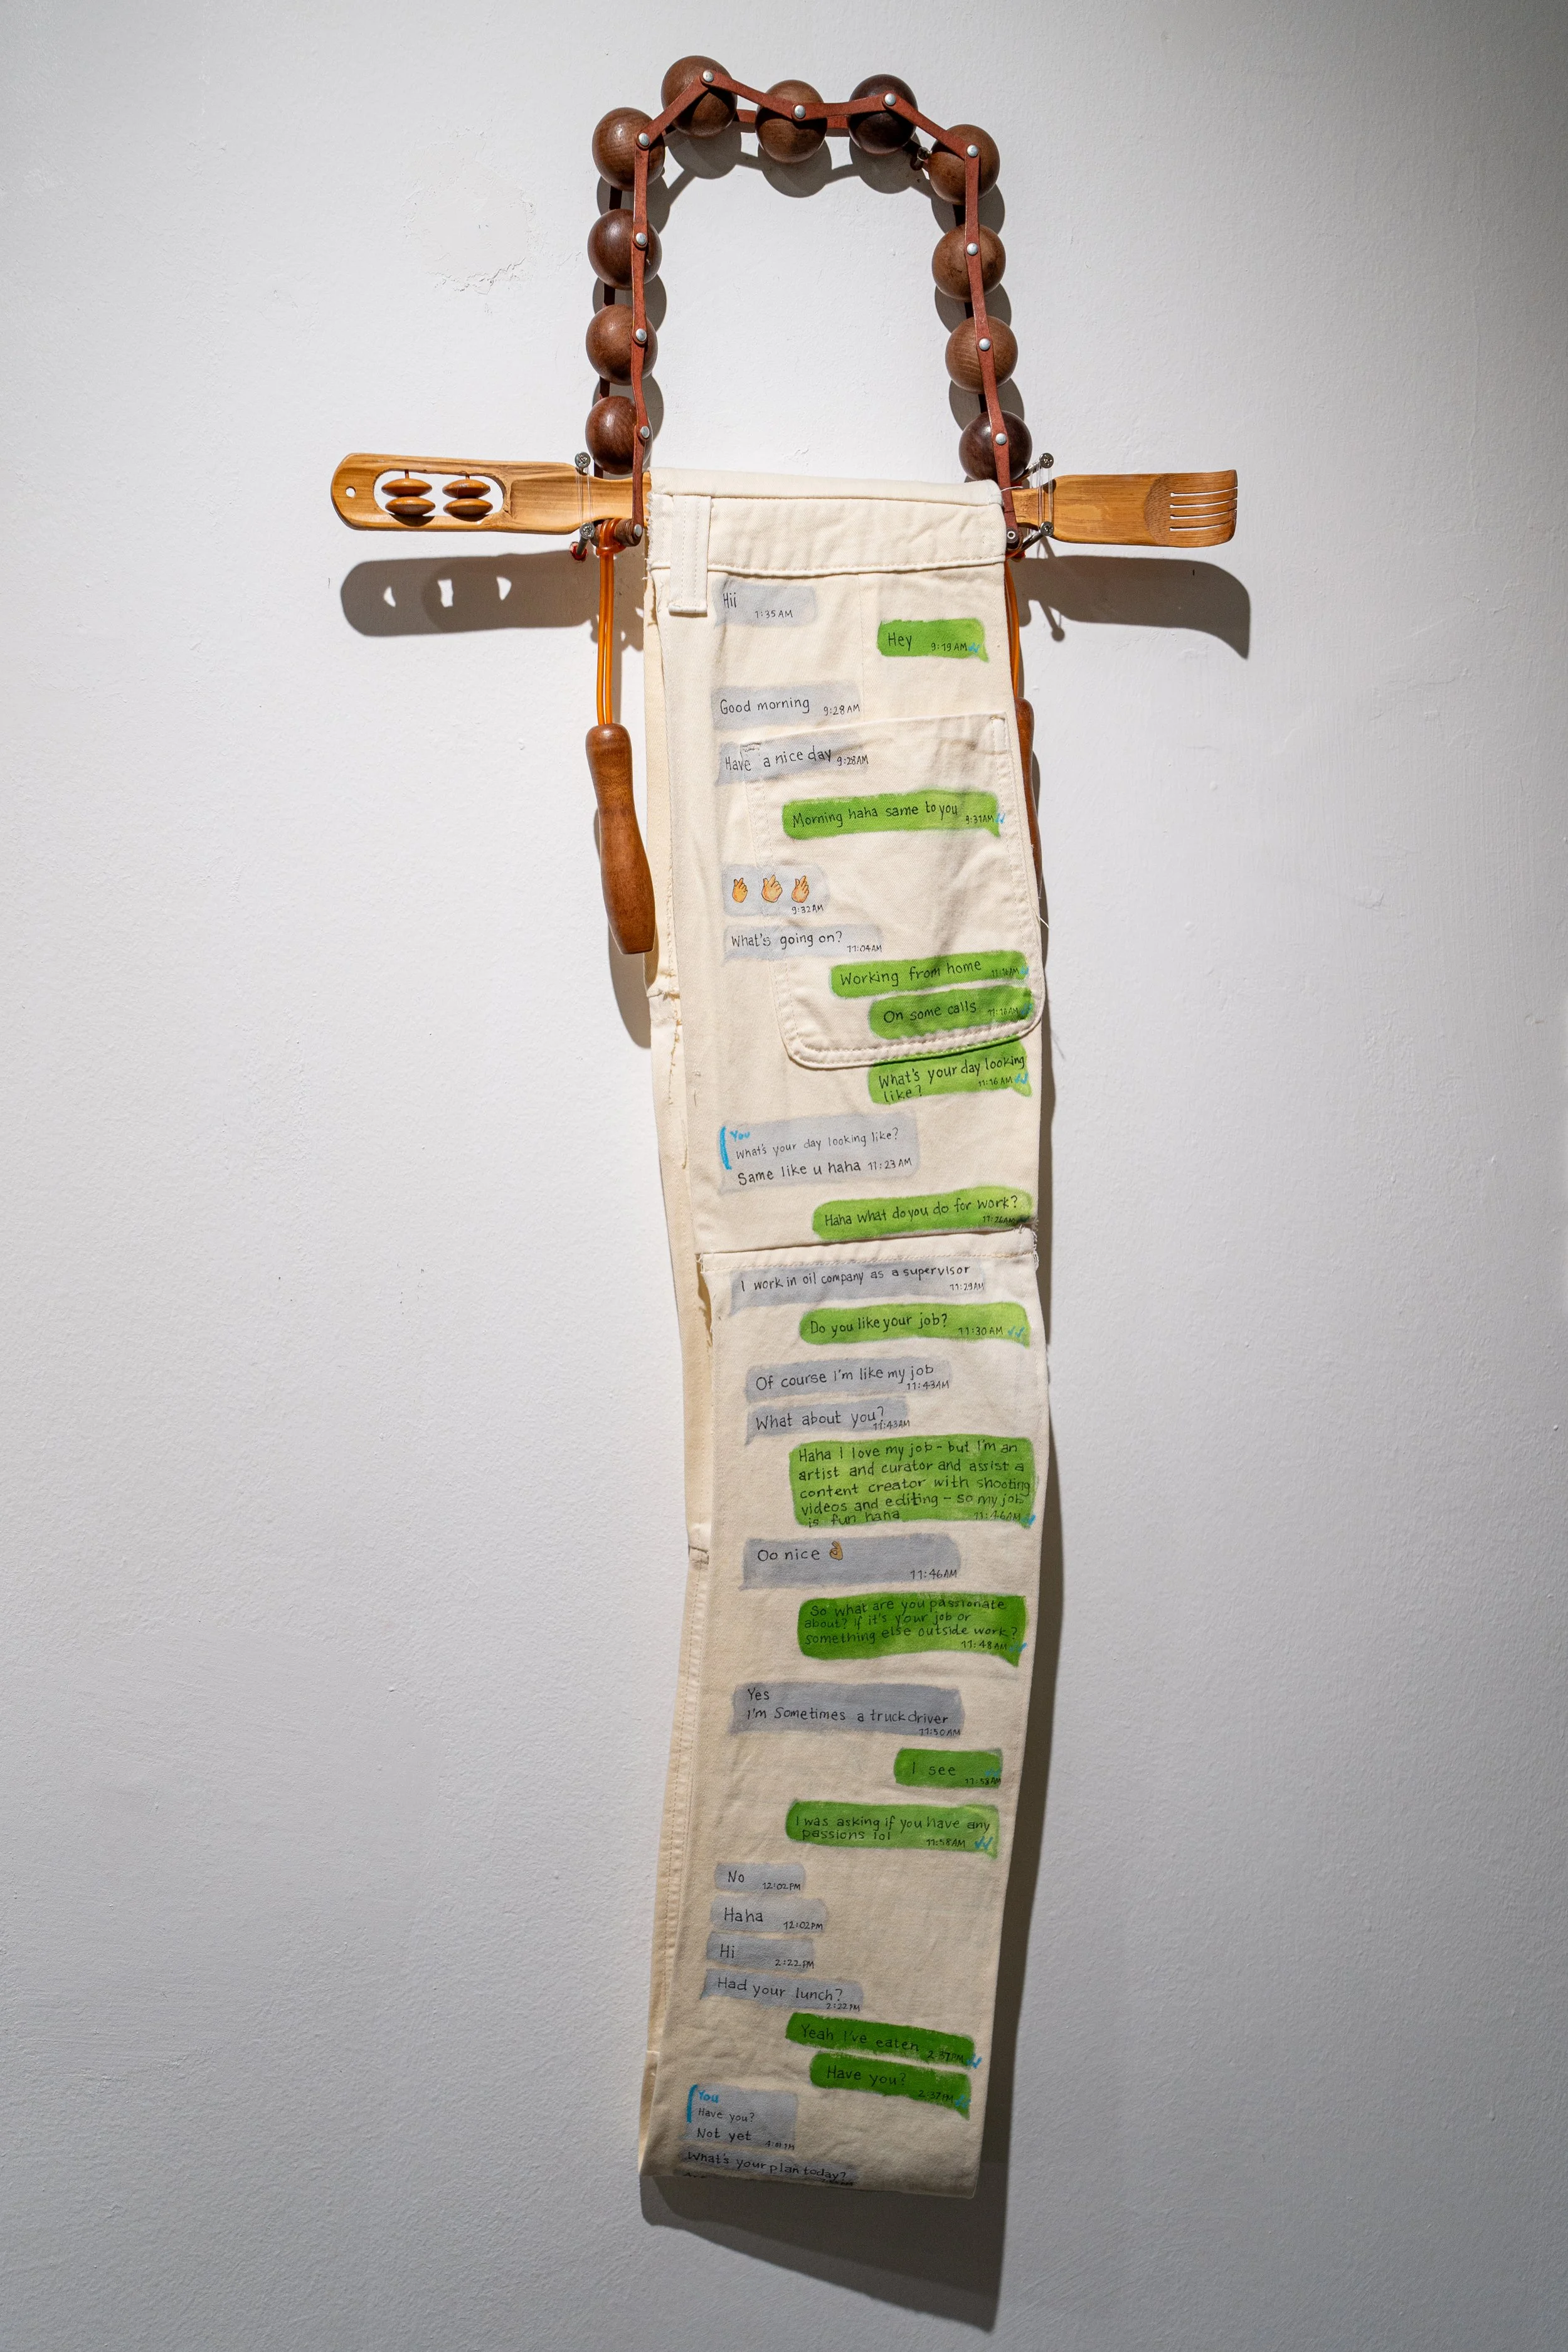 Hii
1:35 AM
Hey 9:19 AM
Good morning 9:28 AM
Have a nice day 9:28 AM
Morning haha same to you 9:31 AM
9:32 AM
What's going on? 11:04 AM
Working from home
On some calls
What's your day looking
like? 11:16 AM
You
What's your day looking like?
Same like u haha 11:23 AM
Haha what do you do for work?
11:26 AM
I work in oil company as a supervisor
11:29 AM
Do you like your job? 11:30 AM
Of course I'm like my job
11:43 AM
What about you? 11:43 AM
Haha I love my job - but I'm an
artist and curator and assist a
content creator with shooting
videos and editing - so my job
is fun haha 11:46 AM
Oo nice 👌
11:46 AM
So what are you passionate
about? If it's your job or
something else outside work?
11:48 AM
Yes
I'm Sometimes a truck driver
11:50 AM
I see 11:58 AM
I was asking if you have any
passions lol 11:58 AM
No 12:02 PM
Haha 12:02 PM
Hi 2:22 PM
Had your lunch?
2:22 PM
Yeah I've eaten 2:37 PM
Have you? 2:37 PM
You
Have you?
Not yet
What's your plan today?